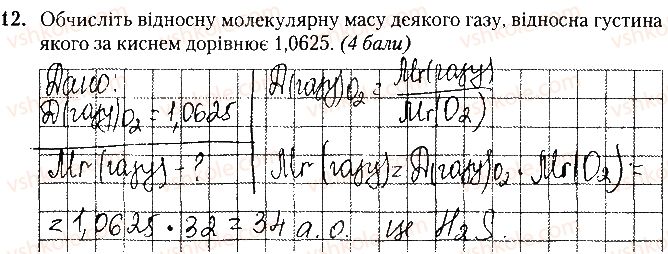 12. Обчисліть відносну молекулярну масу деякого газу, відносна густина
якого за киснем дорівнює 1,0625. (4 бали)
Дано:
D(газу)O₂ = 1,0625
Mr(газу) - ?
D(газу)O₂ = Mr(газу) / Mr(O₂)
Mr(газу) = D(газу)O₂ · Mr(O₂) =
= 1,0625 · 32 = 34 а.о. це H₂S.